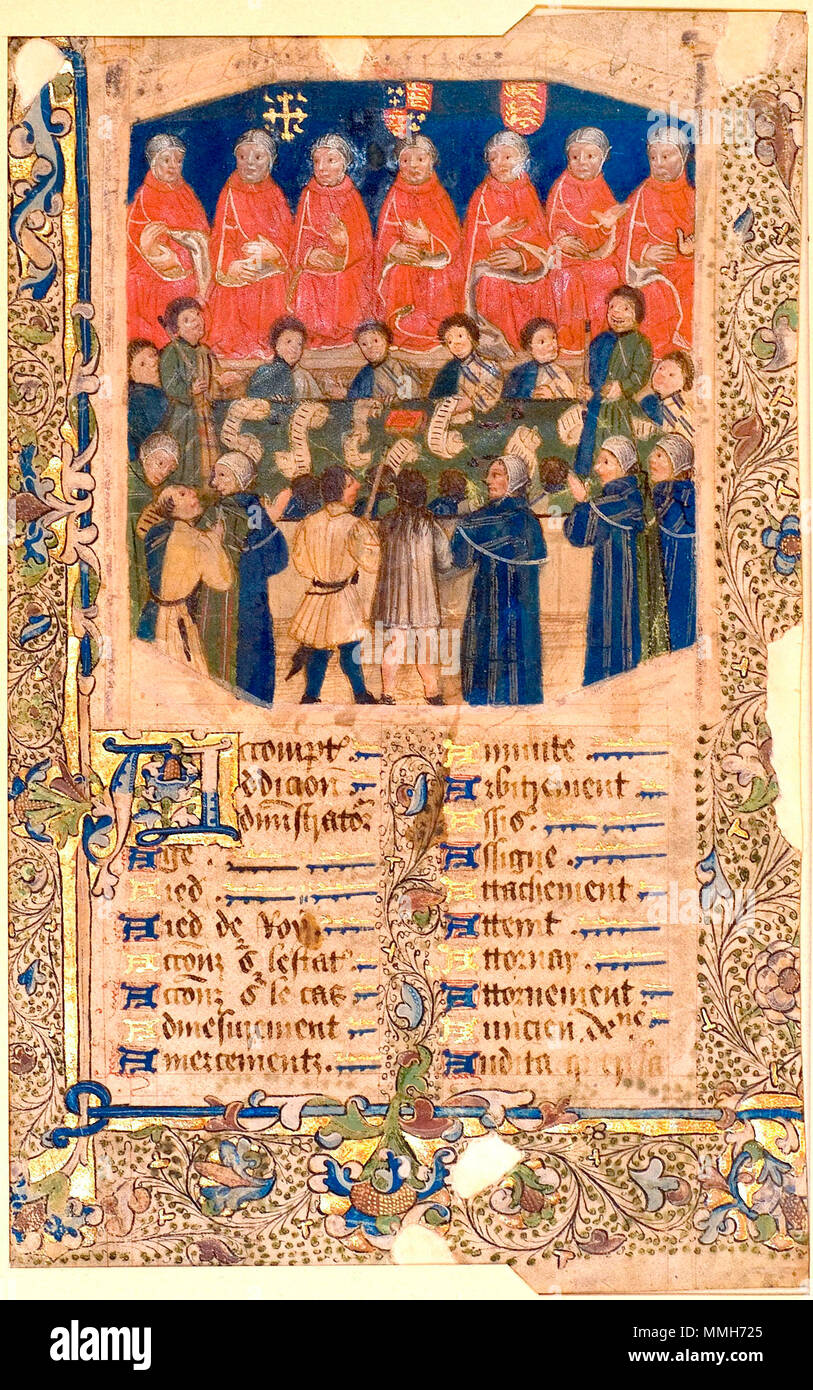 Accompt
Addicion
Administrator
Age.
Aied.
Aied de Roy.
Accionz sr lestat.
Accionz sr le cas
Admesurement
Amercementz.
Annuite
Arbitrement
Assis.
Assigne.
Attachement
Atteint
Attornay.
Attornement
Auncien
Audita
alamy
Image ID: MMH725
www.alamy.com